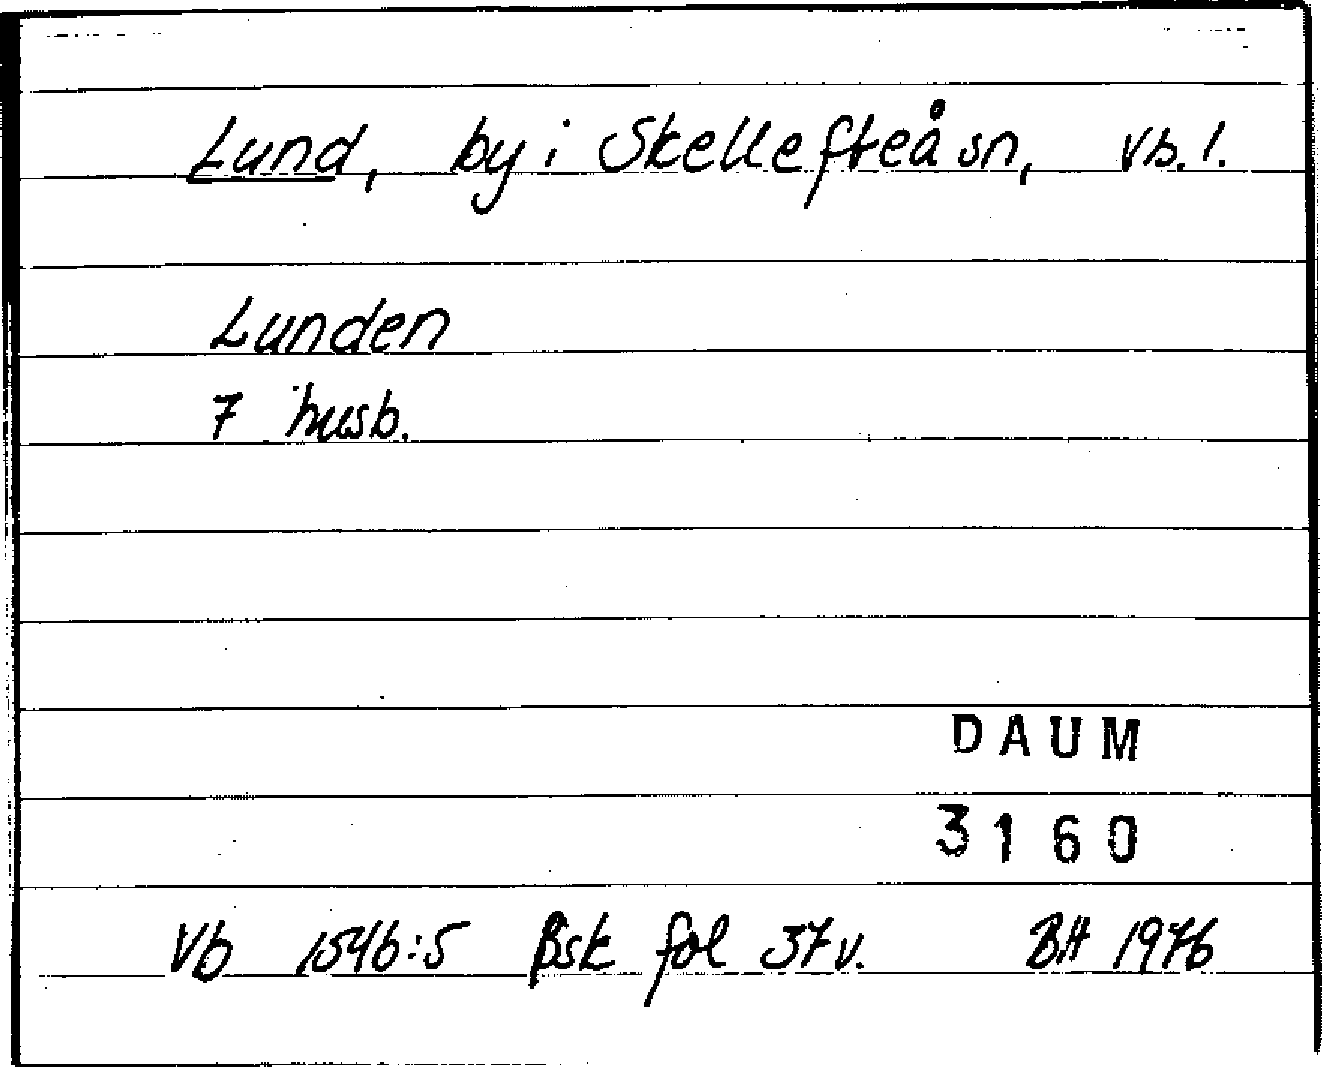 Lund, by i Skellefteå sn, Vb. l.
Lunden
7 husb.
DAUM
3160
Vb 1546:5 Bsk fol 37v. BH 1976